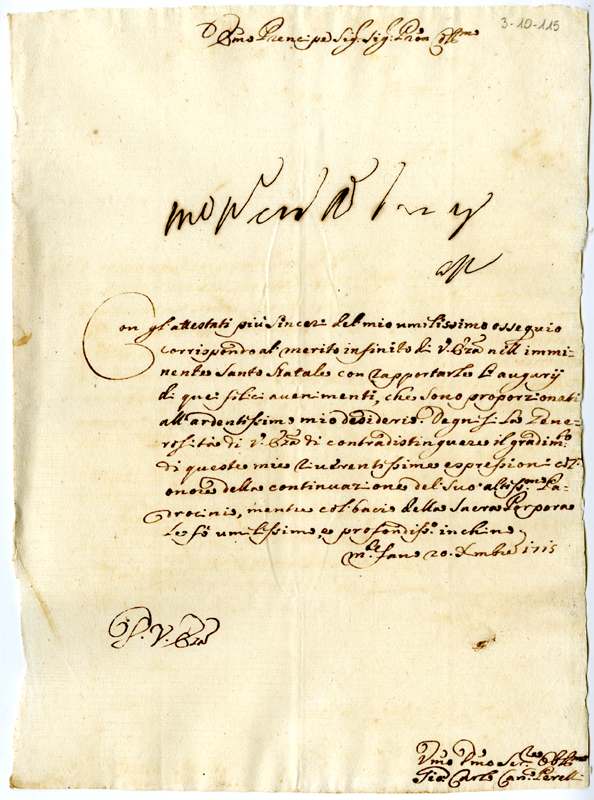 3-10-115
Em̃o Prencipe Sig. Sig. Pron Coll.mo
Con gl'attestati più sinceri del mio umilissimo ossequio
corrispondo al merito infinito di V. Em̃za nell'immi-
nente Santo Natale con rapportarle gl'augurij
di quei felici avenimenti, che sono proporzionati
all'ardentissimo mio desiderio. Degnisi la Gene-
rosità di V. Em̃za di contradistinguere il gradim.to
di queste mie riverentissime espressioni coll'
onore della continuazione del Suo altiss.mo Pa-
trocinio, mentre col bacio della Sacra Porpora
le fò umilissimo, e profondiss.o inchino
Fano 20. Xmbre 1715
D. V. Em̃za
Um̃o Dm̃o Ser.re Obb.mo
Gio: Carlo Can.